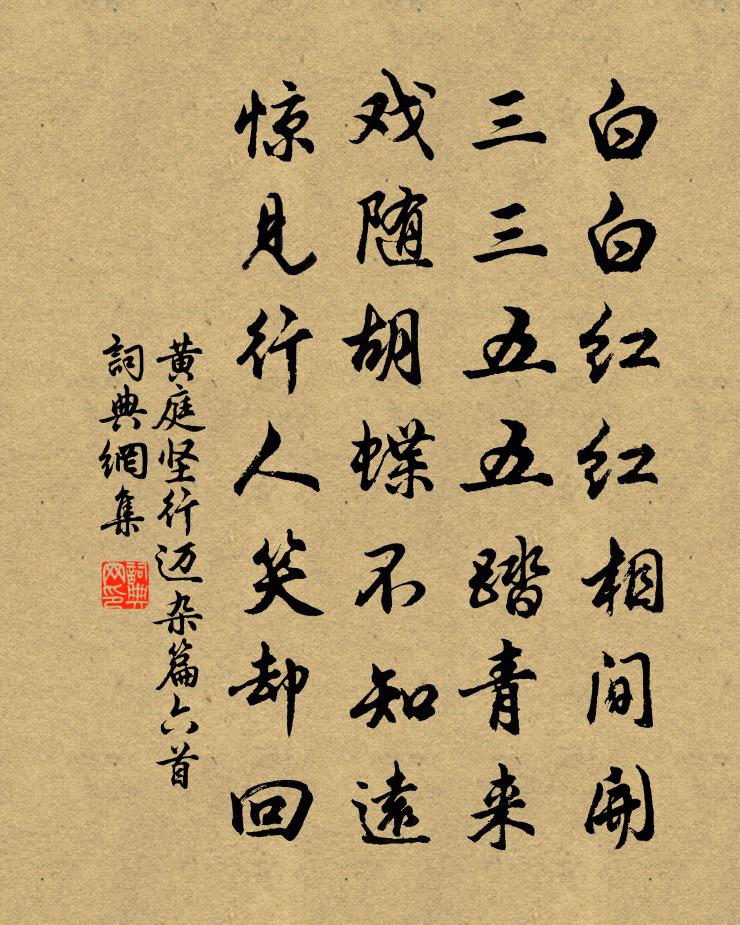 白白红红相间開
三三五五踏青来
戏随胡蝶不知遠
惊见行人笑却回
黄庭坚行迈杂篇六首
詞典網集
詞典網印